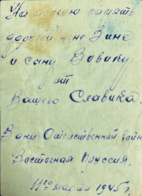 На долгую память
дорогой жене Зине
и сыну Вовику
от
Вашего Славика.
В дни Отечественной войны
Восточная Пруссия.
11го марта 1945 г.